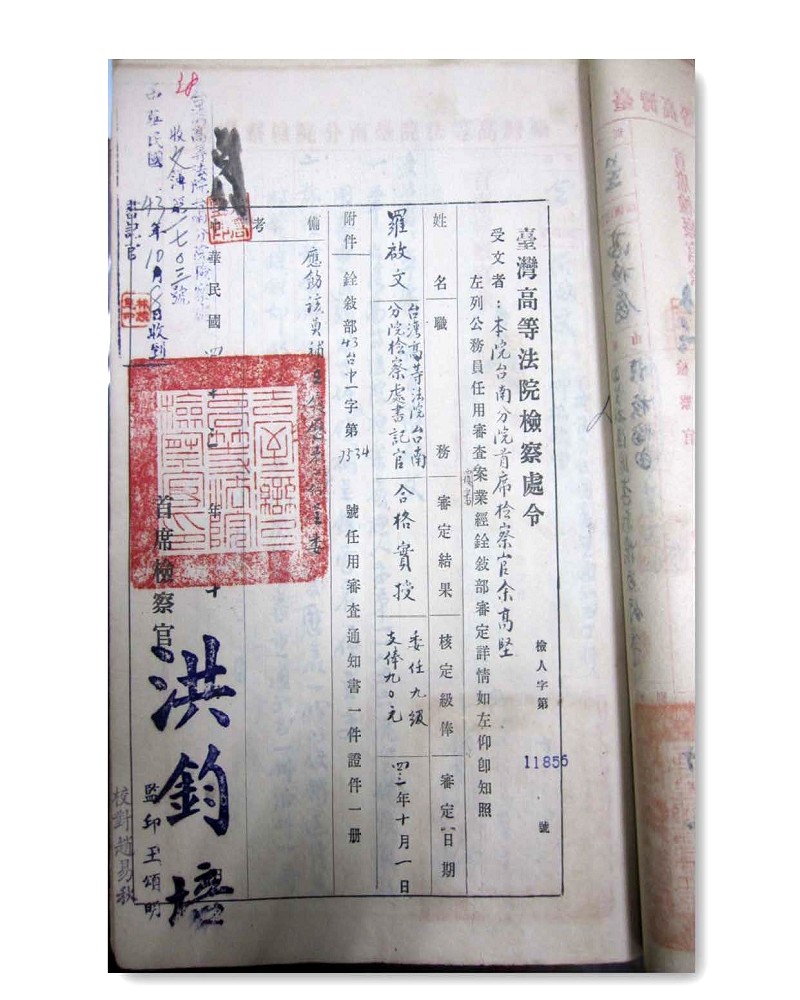 臺灣高等法院檢察處令
檢人字第11856號
受文者：本院台南分院首席檢察官余高堅
左列公務員任用審查案業經銓敘部審定詳情如左仰卽知照
姓名
職務
審定結果
核定級俸
審定日期
羅啟文
台灣高等法院台南
分院檢察處書記官
合格實授
委任九級
支俸九〇元
四三年十月一日
附件
銓敘部43台中一字第7534號任用審查通知書一件證件一册
備考
應飭該員補
中華民國四十
年
十
首席檢察官
洪鈞培
監印王頌明
校對趙易秋
38
高等法院台南分院檢察
收文牌照一七〇三號
民國
43年10月8日收到
登記官